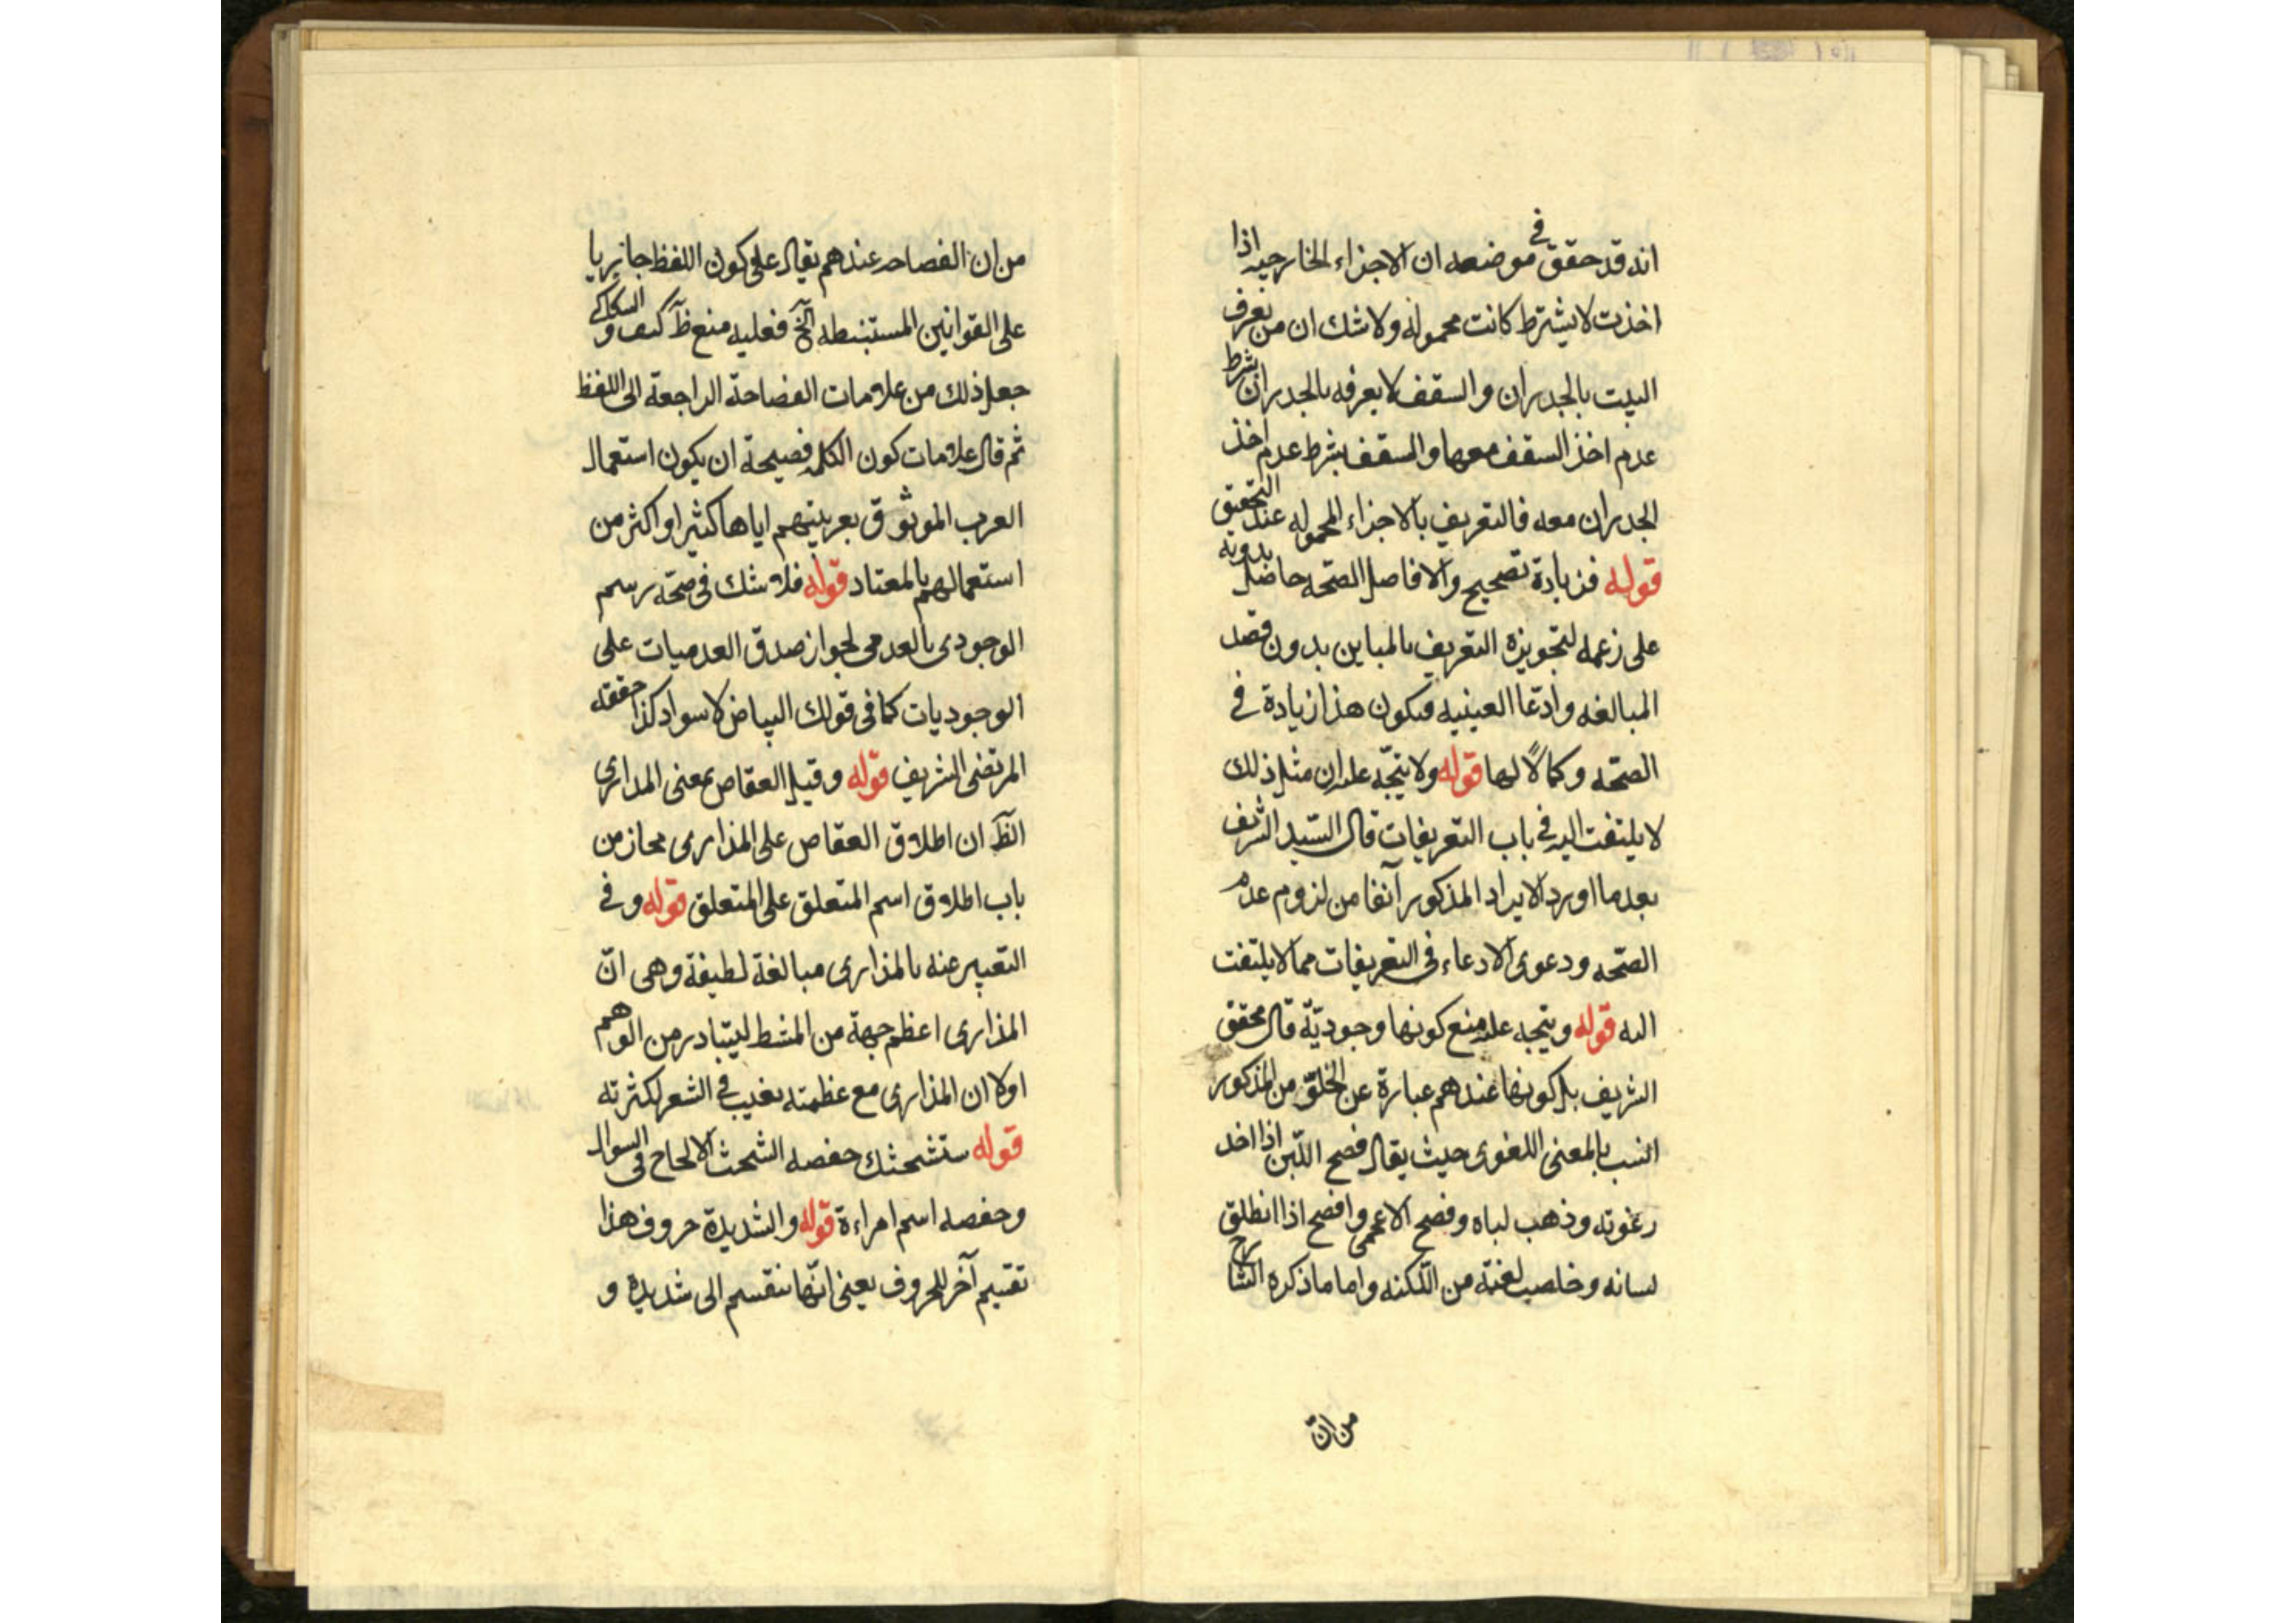 انه قد حقق في موضعه ان الاجزاء الخارجيه اذا
اخذت لا بشرط كانت محموله ولا شك ان من تعرف
البيت بالجدران والسقف لا يعرفه بالجدران بشرط
عدم اخذ السقف معها والسقف بشرط عدم اخذ
الجدران معه فالتعريف بالاجزاء المحموله عند التحقيق
قوله فزيادة تصحيح والا فاصل الصحّه حاصل بدونه
على زعمه لتجويزه التعريف بالمباين بدون قصد
المبالغه وادّعا العينيه فيكون هذا زيادة في
الصحّه وكمالاً لها قوله ولا يتجّه عليه ان مثل ذلك
لا يلتفت اليه في باب التعريفات قال السّيد الشريف
بعد ما اورد الايراد المذكور آنفا من لزوم عدم
الصحّه ودعوى الادعاء في التعريفات مما لا يلتفت
اليه قوله ويتجه عليه منع كونها وجوديّة قال محقق
الشريف بل كونها عندهم عبارة عن الخلوّ من المذكور
انسب بالمعنى اللغوى حيث يقال فصح اللّبن اذا اخد
رغوته وذهب لباه وفصح الاعجمى وافصح اذا انطلق
لسانه وخلصت لغته من اللّكنه واما ما ذكره الشارح
من انّ
من ان الفصاحه عندهم يقال على كون اللفظ جاريا
على القوانين المستنبطه الخ فعليه منع ظ كيف والسكاكى
جعل ذلك من علامات الفصاحة الراجعة الى اللفظ
ثم قال علامات كون الكلمه فصيحة ان يكون استعمال
العرب الموثوق بعربيتهم اياها كثيرا او اكثر من
استعمالهم بالمعتاد قوله فلا شك فى صحّة رسم
الوجودى بالعدمى لجواز صدق العدميات على
الوجوديات كما فى قولك البياض لا سواد كذا حققه
المرتضى الشريف قوله وقيل العقاص بمعنى المدارى
الظ ان اطلاق العقاص على المذارى مجاز من
باب اطلاق اسم المتعلق على المتعلق قوله وفي
التعبير عنه بالمذارى مبالغة لطيفة وهى انّ
المذارى اعظم جهة من المشط ليتبادر من الوهم
اولا ان المذارى مع عظمته يغيب في الشعر لكثرته
قوله ستشحثك حفصه الشحث الالحاح فى السوال
وحفصه اسم امراءة قوله والشديدة حروف هذا
تقسيم آخر للحروف يعنى انّها تنقسم الى شديدة و